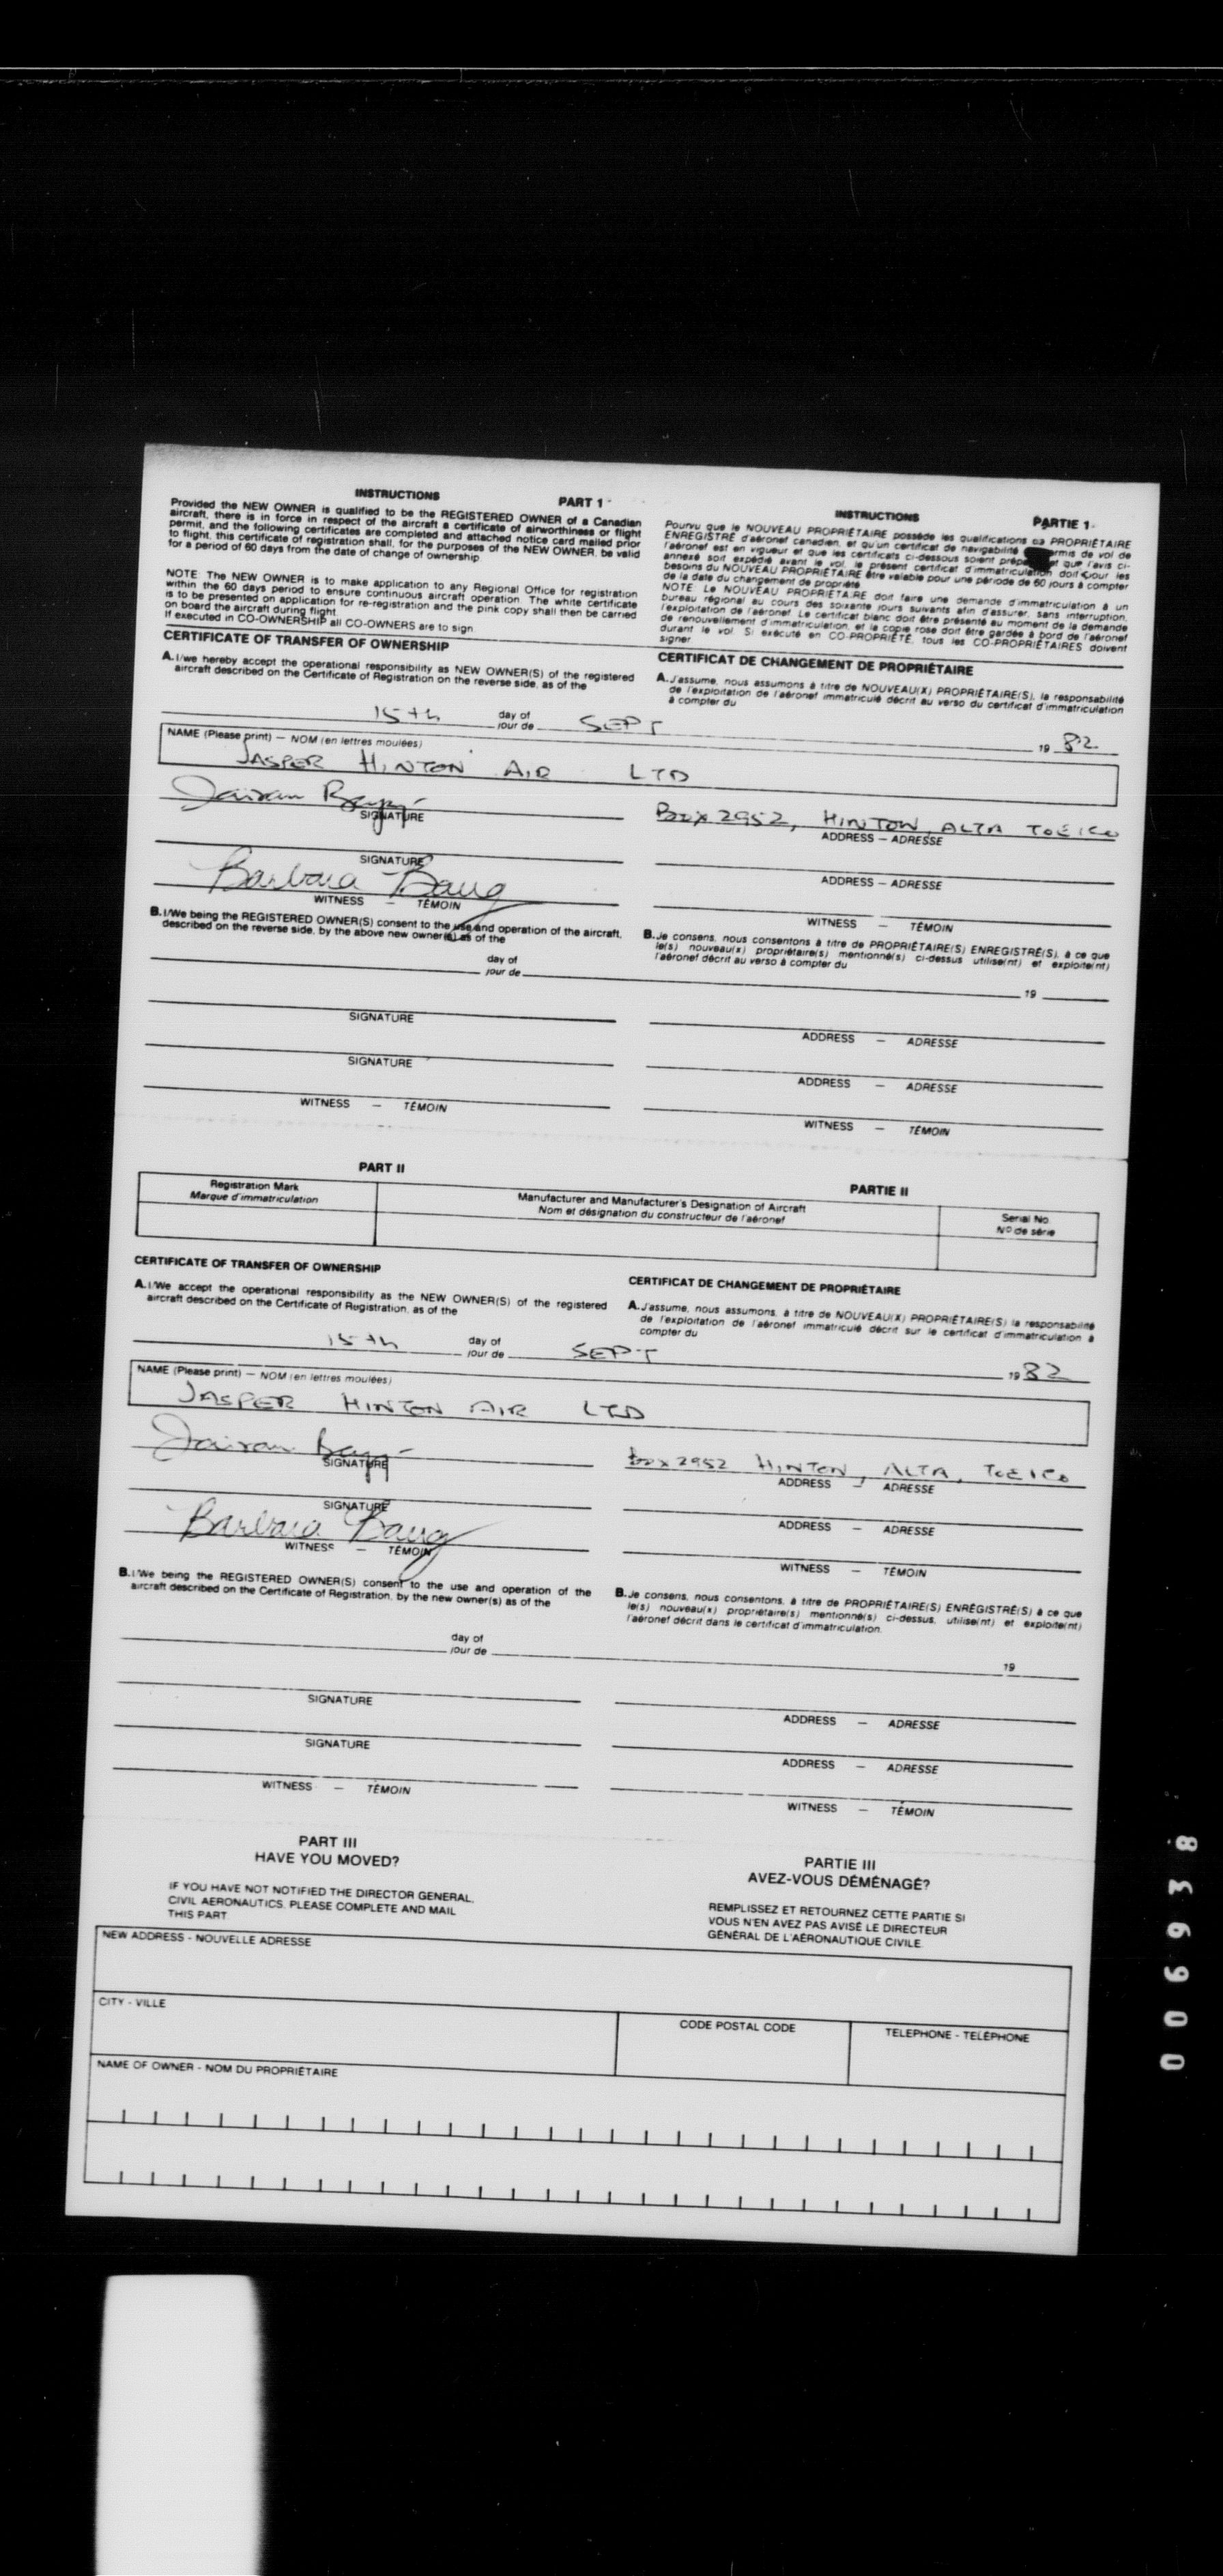 INSTRUCTIONS PART 1
Provided the NEW OWNER is qualified to be the REGISTERED OWNER of a Canadian
aircraft, there is in force in respect of the aircraft a certificate of airworthiness or flight
permit, and the following certificates are completed and attached notice card mailed prior
to flight, this certificate of registration shall, for the purposes of the NEW OWNER, be valid
for a period of 60 days from the date of change of ownership
NOTE: The NEW OWNER is to make application to any Regional Office for registration
within the 60 days period to ensure continuous aircraft operation. The white certificate
is to be presented on application for re-registration and the pink copy shall then be carried
on board the aircraft during flight.
If executed in CO-OWNERSHIP all CO-OWNERS are to sign
CERTIFICATE OF TRANSFER OF OWNERSHIP
A. I/we hereby accept the operational responsibility as NEW OWNER(S) of the registered
aircraft described on the Certificate of Registration on the reverse side, as of the
INSTRUCTIONS PARTIE 1
Pourvu que le NOUVEAU PROPRIÉTAIRE possède les qualifications de PROPRIÉTAIRE
ENREGISTRÉ d'aéronef canadien, et qu'un certificat de navigabilité permis de vol de
l'aéronef est en vigueur et que les certificats ci-dessous soient et que l'avis ci-
annexé soit expédié avant le vol, le présent certificat d'immatriculation doit pour les
besoins du NOUVEAU PROPRIÉTAIRE être valable pour une période de 60 jours à compter
de la date du changement de propriété.
NOTE: Le NOUVEAU PROPRIÉTAIRE doit faire une demande d'immatriculation à un
bureau régional au cours des soixante jours suivants afin d'assurer, sans interruption,
l'exploitation de l'aéronef. Le certificat blanc doit être présenté au moment de la demande
de renouvellement d'immatriculation, et la copie rose doit être gardée à bord de l'aéronef
durant le vol. Si exécuté en CO-PROPRIÉTÉ, tous les CO-PROPRIÉTAIRES doivent
signer
CERTIFICAT DE CHANGEMENT DE PROPRIÉTAIRE
A. J'assume, nous assumons à titre de NOUVEAU(X) PROPRIÉTAIRE(S), la responsabilité
de l'exploitation de l'aéronef immatriculé décrit au verso du certificat d'immatriculation
à compter du
15th day of jour de SEPT 19 82
NAME (Please print) — NOM (en lettres moulées)
JASPER HINTON AIR LTD
SIGNATURE
Box 2952, HINTON, ALTA T0E1C0
ADDRESS — ADRESSE
SIGNATURE
ADDRESS — ADRESSE
Barbara
WITNESS — TÉMOIN
WITNESS — TÉMOIN
B. I/We being the REGISTERED OWNER(S) consent to the use and operation of the aircraft,
described on the reverse side, by the above new owner(s) as of the
B. Je consens, nous consentons à titre de PROPRIÉTAIRE(S) ENREGISTRÉ(S), à ce que
le(s) nouveau(x) propriétaire(s) mentionné(s) ci-dessus utilise(nt) et exploite(nt)
l'aéronef décrit au verso à compter du
day of
jour de 19
SIGNATURE
ADDRESS — ADRESSE
SIGNATURE
ADDRESS — ADRESSE
WITNESS — TÉMOIN
WITNESS — TÉMOIN
PART II
PARTIE II
Registration Mark
Marque d'immatriculation
Manufacturer and Manufacturer's Designation of Aircraft
Nom et désignation du constructeur de l'aéronef
Serial No.
Nº de série
CERTIFICATE OF TRANSFER OF OWNERSHIP
A. I/We accept the operational responsibility as the NEW OWNER(S) of the registered
aircraft described on the Certificate of Registration, as of the
CERTIFICAT DE CHANGEMENT DE PROPRIÉTAIRE
A. J'assume, nous assumons, à titre de NOUVEAU(X) PROPRIÉTAIRE(S) la responsabilité
de l'exploitation de l'aéronef immatriculé décrit sur le certificat d'immatriculation à
compter du
15th day of jour de SEPT 19 82
NAME (Please print) — NOM (en lettres moulées)
JASPER HINTON AIR LTD
SIGNATURE
Box 2952 HINTON, ALTA, T0E1C0
ADDRESS — ADRESSE
SIGNATURE
ADDRESS — ADRESSE
Barbara
WITNESS — TÉMOIN
WITNESS — TÉMOIN
B. I/We being the REGISTERED OWNER(S) consent to the use and operation of the
aircraft described on the Certificate of Registration, by the new owner(s) as of the
B. Je consens, nous consentons, à titre de PROPRIÉTAIRE(S) ENREGISTRÉ(S) à ce que
le(s) nouveau(x) propriétaire(s) mentionné(s) ci-dessus, utilise(nt) et exploite(nt)
l'aéronef décrit dans le certificat d'immatriculation.
day of
jour de 19
SIGNATURE
ADDRESS — ADRESSE
SIGNATURE
ADDRESS — ADRESSE
WITNESS — TÉMOIN
WITNESS — TÉMOIN
PART III
HAVE YOU MOVED?
IF YOU HAVE NOT NOTIFIED THE DIRECTOR GENERAL,
CIVIL AERONAUTICS, PLEASE COMPLETE AND MAIL
THIS PART.
PARTIE III
AVEZ-VOUS DÉMÉNAGÉ?
REMPLISSEZ ET RETOURNEZ CETTE PARTIE SI
VOUS N'EN AVEZ PAS AVISÉ LE DIRECTEUR
GÉNÉRAL DE L'AÉRONAUTIQUE CIVILE
NEW ADDRESS - NOUVELLE ADRESSE
CITY - VILLE
CODE POSTAL CODE
TELEPHONE - TELÉPHONE
NAME OF OWNER - NOM DU PROPRIÉTAIRE
006938